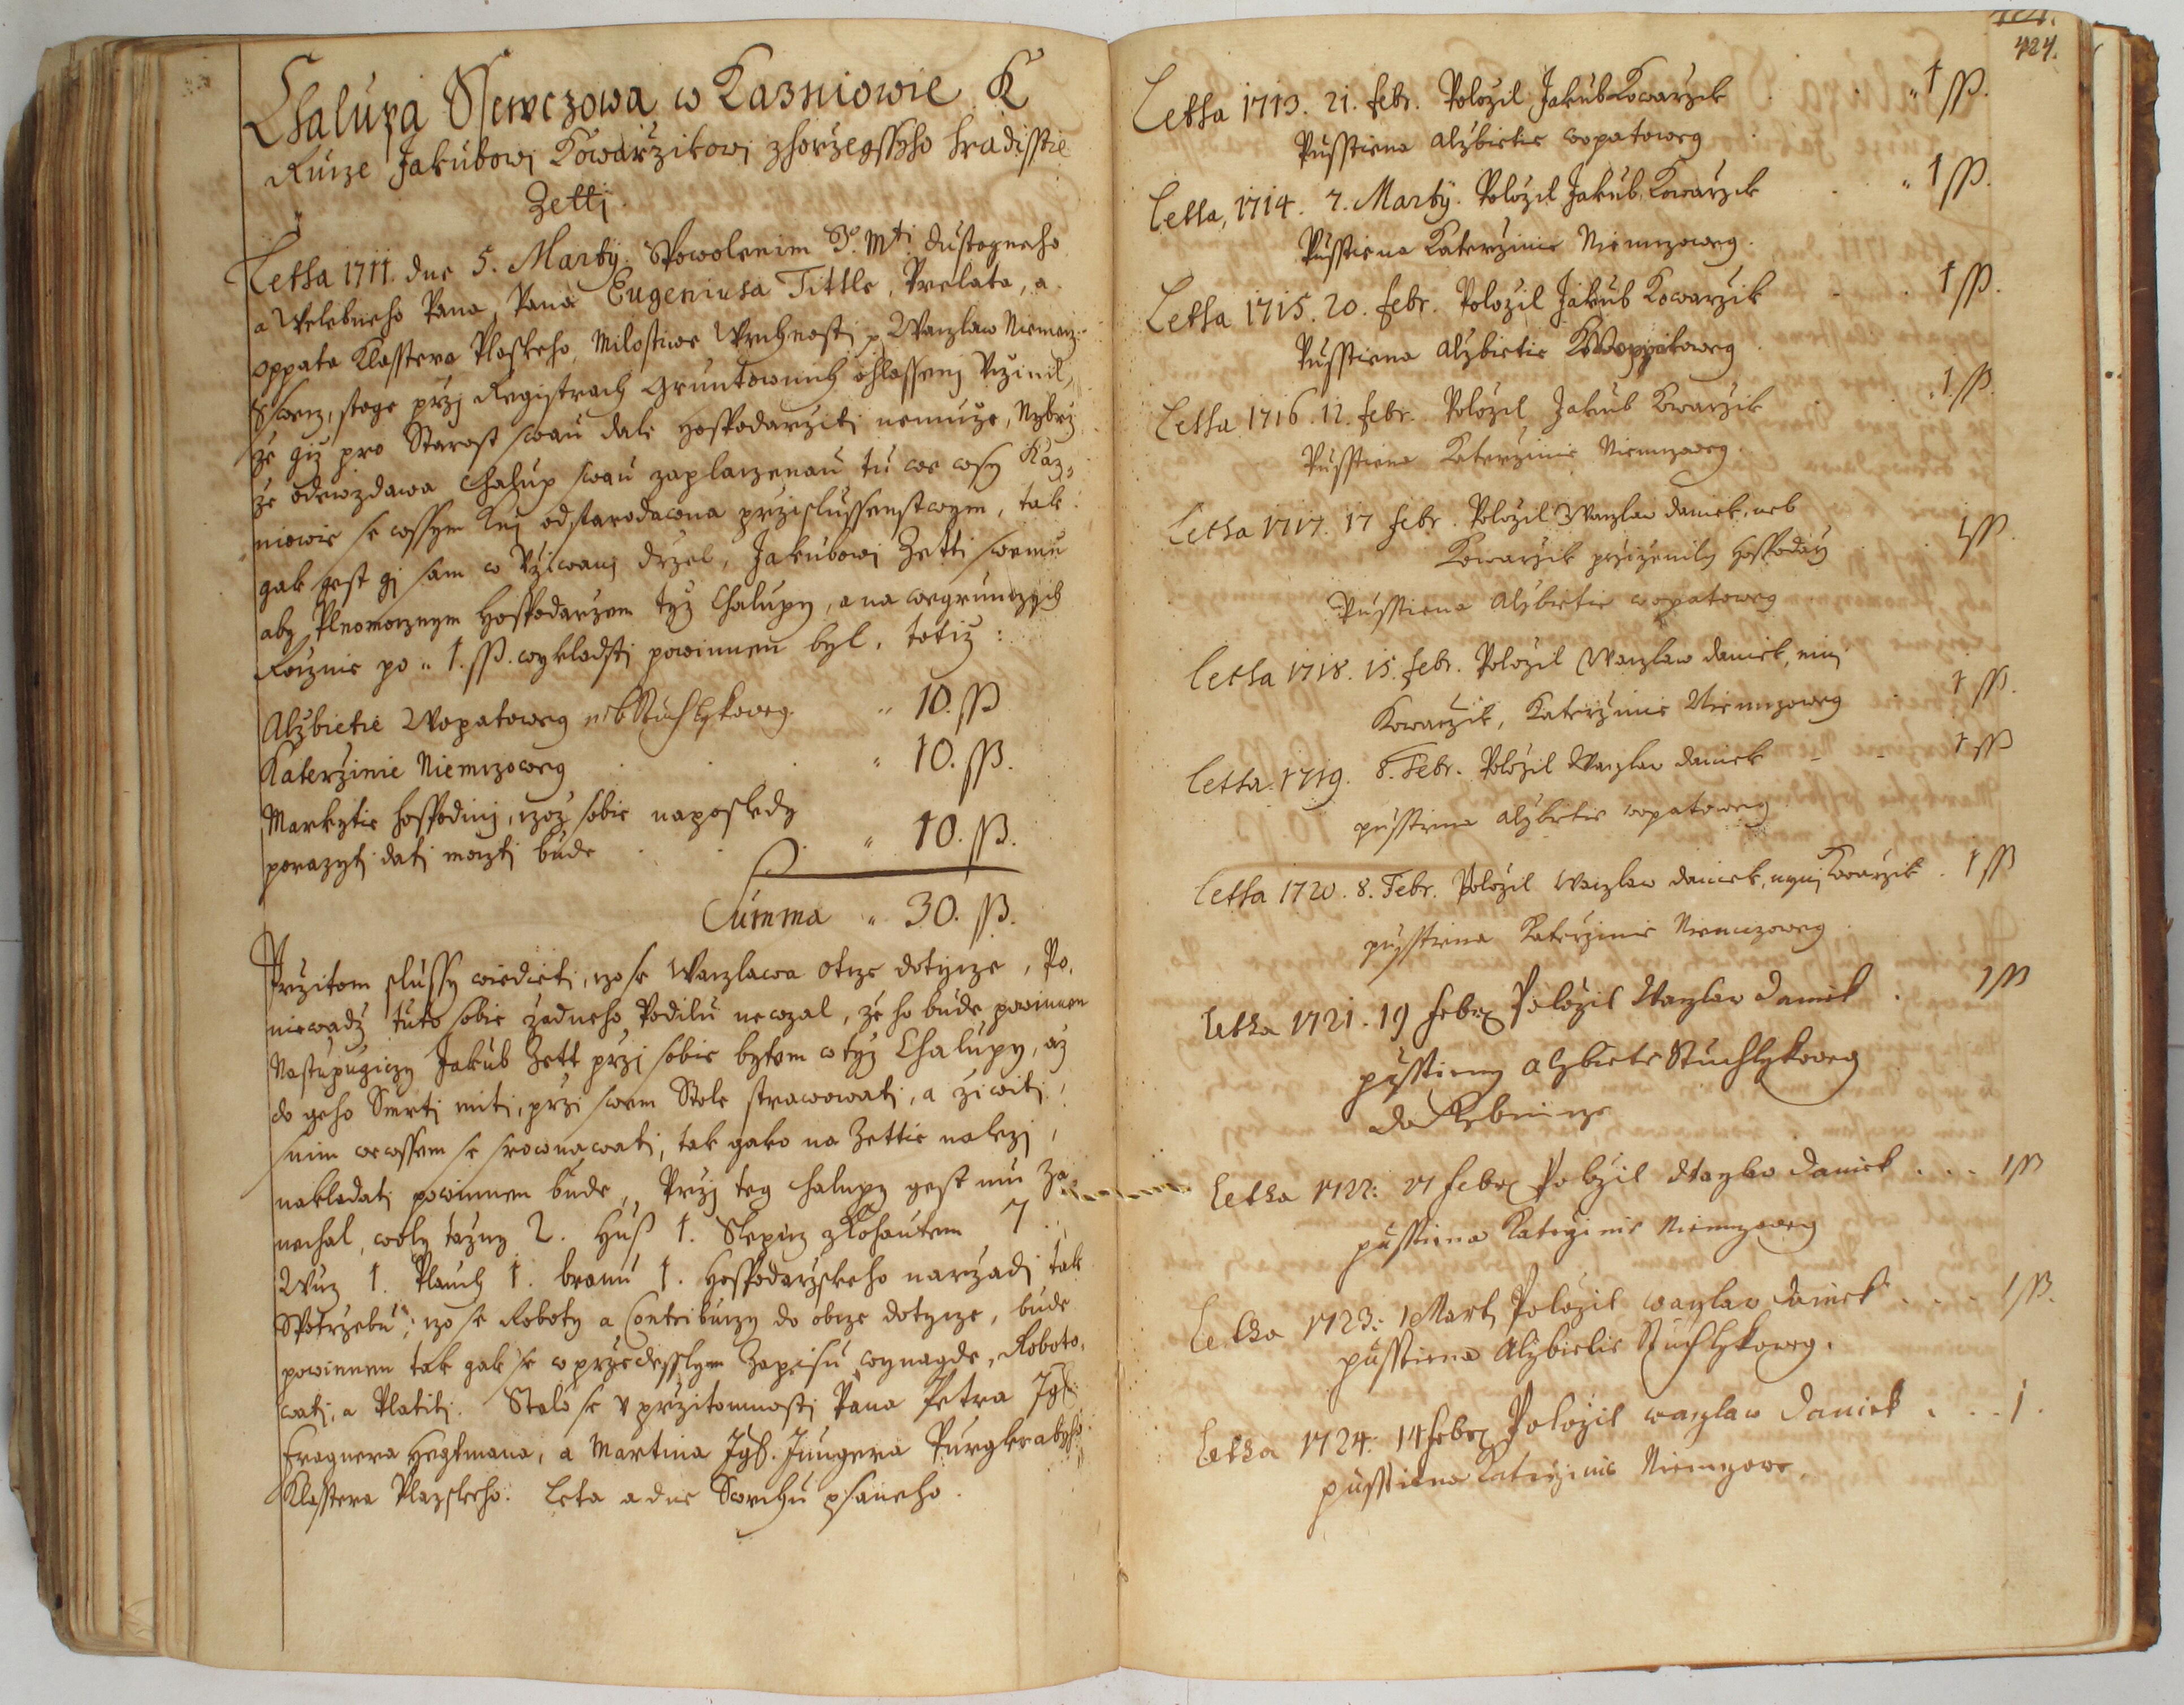 Chalupa Ssewczowa w Kazniowie K
Ruize Jakubowj Kowarzikowj zhorzegssyho hradisstie
Zettj.
Letha 1711. dne 5. Martij. Spowolenim J.° Mti. dustogneho
a Welebneho Pana, Pana Eugeniusa Tittle, Prelata, a
Oppata Klasstera Plaskeho, Milostiwe Wrchnosti, Waczlaw Niemecz
Sswecz, stoge przj Registrach Gruntownich ohlassenj Uczinil,
że giż pro Starost swau dale hospodarżiti nemuże, Nybrż
że odewzdawa Chalup swau zaplaczenau tu we wsy Kaz-
niowie se wssym knj odstarodawna przislussenstwym, tak
gak gest gj sam w Użiwanj drżel, Jakubowj Zetti swemu
aby Plnomocznym Hospodarżem tyż Chalupy, a na wegrunczych
Rocznie po " 1. ss. wykladsti powinnen byl, totiż:
Alżbietie Wopatoweg neb Stuchlykoweg. " 10. ss
Katerżinie Niemczoweg " 10. ss.
Markytie hospodinj, czoż sobie naposledy
porazyti dati moczti bude " 10. ss.
Summa " 30. ss.
Przitom slussy wiedieti, czo se Waczlawa Otcze dotycze, Po-
niewadż tuto sobie żadneho Podilu newzal, że ho bude powinnen
Nastupugiczy Jakub Zett przj sobie bytem w tyż Chalupy, aż
do geho Smrti miti, przi swem Stole strawowati, a żiwiti
snim wewssem se srownawati, tak gako na Zettie nalezj,
nakladati powinnen bude, Przj teg Chalupy gest mu Za-
nechal, woly tażny 2. Hus 1. Slepicz zKohautem 7
Wuz 1. Plauch 1. branu 1. Hospodarżskeho narżadj tak
Spotrżebu; czo se Roboty a Contribuczy do obcze dotycze, bude
powinnen tak gak se w przedesslym Zapisu wynagde, Roboto-
wati, a Platiti. Stalo se v przitomnosti Pana Petra Ign:
Fragnera Hegtmana, a Martina Ign. Jungera Purgkrabyho
Klastera Plazskeho. Leta a dne Swrchu psaneho.
424.
Letha 1713. 21. Febr. Polożil Jakub Kowarżik " 1 ss.
Pusstiena Alżbietie Wopatoweg
Letha, 1714. 7. Martij. Polożil Jakub Kowarżik " 1 ss.
Pusstiena Katerżinie Niemczoweg.
Letha 1715. 20. Febr. Polożil Jakub Kowarżik 1 ss.
Pusstiena Alżbietie Woppatoweg
Letha 1716. 12. Febr. Polożil Jakub Kowarżik 1 ss.
Pusstiena Katerżinie Niemczoweg.
Letha 1717. 17 Febr. Polożil Waczlaw Daniek, neb
Kowarżik prziżenily Hospodarż 1 ss.
Pusstiena Alżbietie Wopatoweg
Letha 1718. 15. Febr. Polożil Waczlaw Daniek, ninj
Kowarżik, Katerżinie Niemczoweg 1 ss.
Letha 1719. 8. Febr. Polożil Waczlaw Daniek 1 ss
pusstiena Alżbietie Wopatoweg
Letha 1720. 8. Febr. Polożil Waczlaw Daniek, nynj Kowarżik. 1 ss
pusstiena Katerżinie Niemczoweg
Letha 1721. 19 Febr Polożil Waczlaw Daniek 1 ss
pusstieny Alżbiete Stuchlykoweg
do Rybnicze
Letha 1722: 21 Febr Polożil Waczlaw Daniek ... 1 ss
pusstiena Kateżinie Niemczoweg
Letha 1723: 1 Marti Polożil Waczlaw Daniek ... 1 ss.
pusstiena Alżbietie Stuchlykoweg.
Letha 1724: 14 Febr Polożil Waczlaw Daniek ... 1.
pusstiena Kateżinie Niemczowe.